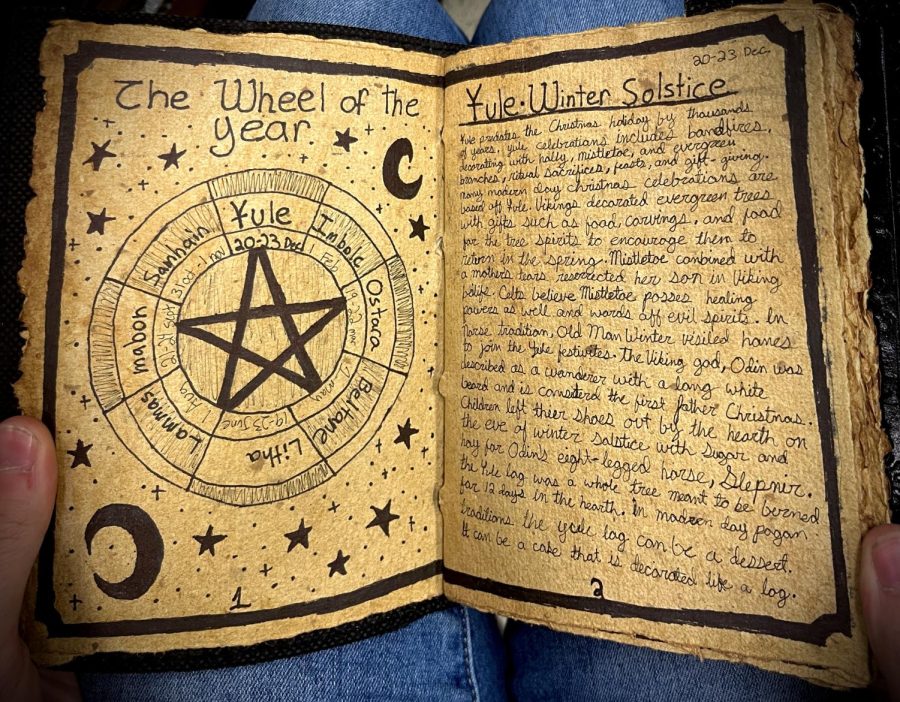 The Wheel of the
year
Yule
20-23 Dec
Imbolc
Feb
Ostara
19-22 mar
Beltane
1 May
Litha
19-23 June
Lammas
1 Aug
mabon
21-24 Sept
Samhain
31 oct - 1 nov
1
20-23 Dec.
Yule • Winter Solstice
Yule predates the Christmas holiday by thousands
of years, yule celebrations includes bandfires,
decorating with holly, mistletoe, and evergreen
branches, ritual sacrifices, feasts, and gift-giving.
many modern day christmas celebrations are
based off Yule. Vikings decorated evergreen trees
with gifts such as food, carvings, and food
for the tree spirits to encouroge them to
return in the spring. Mistletoe combined with
a mothers tears resorrected her son in Viking
belife. Celts believe Mistletoe posses healing
powers as well and words off evil spirits. In
Norse tradition, Old Man Winter visiled hanes
to join the Yuke festivetes. the Viking god, Odin was
described as a wanderer with a long white
beard and is considerd the first father Christmas.
Children left their shoes out by the hearth on
the eve of winter solstice with sugar and
hay for Odin's eight-legged horse, Slepnir.
the Yule log was a whole tree meant to be berned
for 12 days in the hearth. in madren day pogan
traditions the yule log can be a dessert.
It can be a cake that is decorated life a log.
2